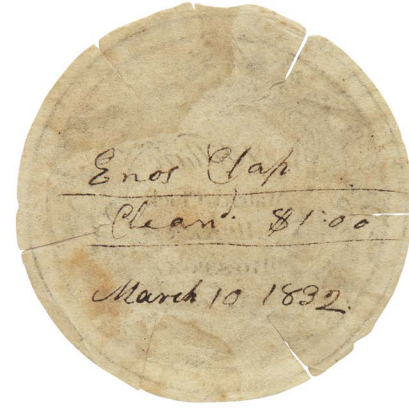 Enos Clap
Clean.d $1.00
March 10 1832.